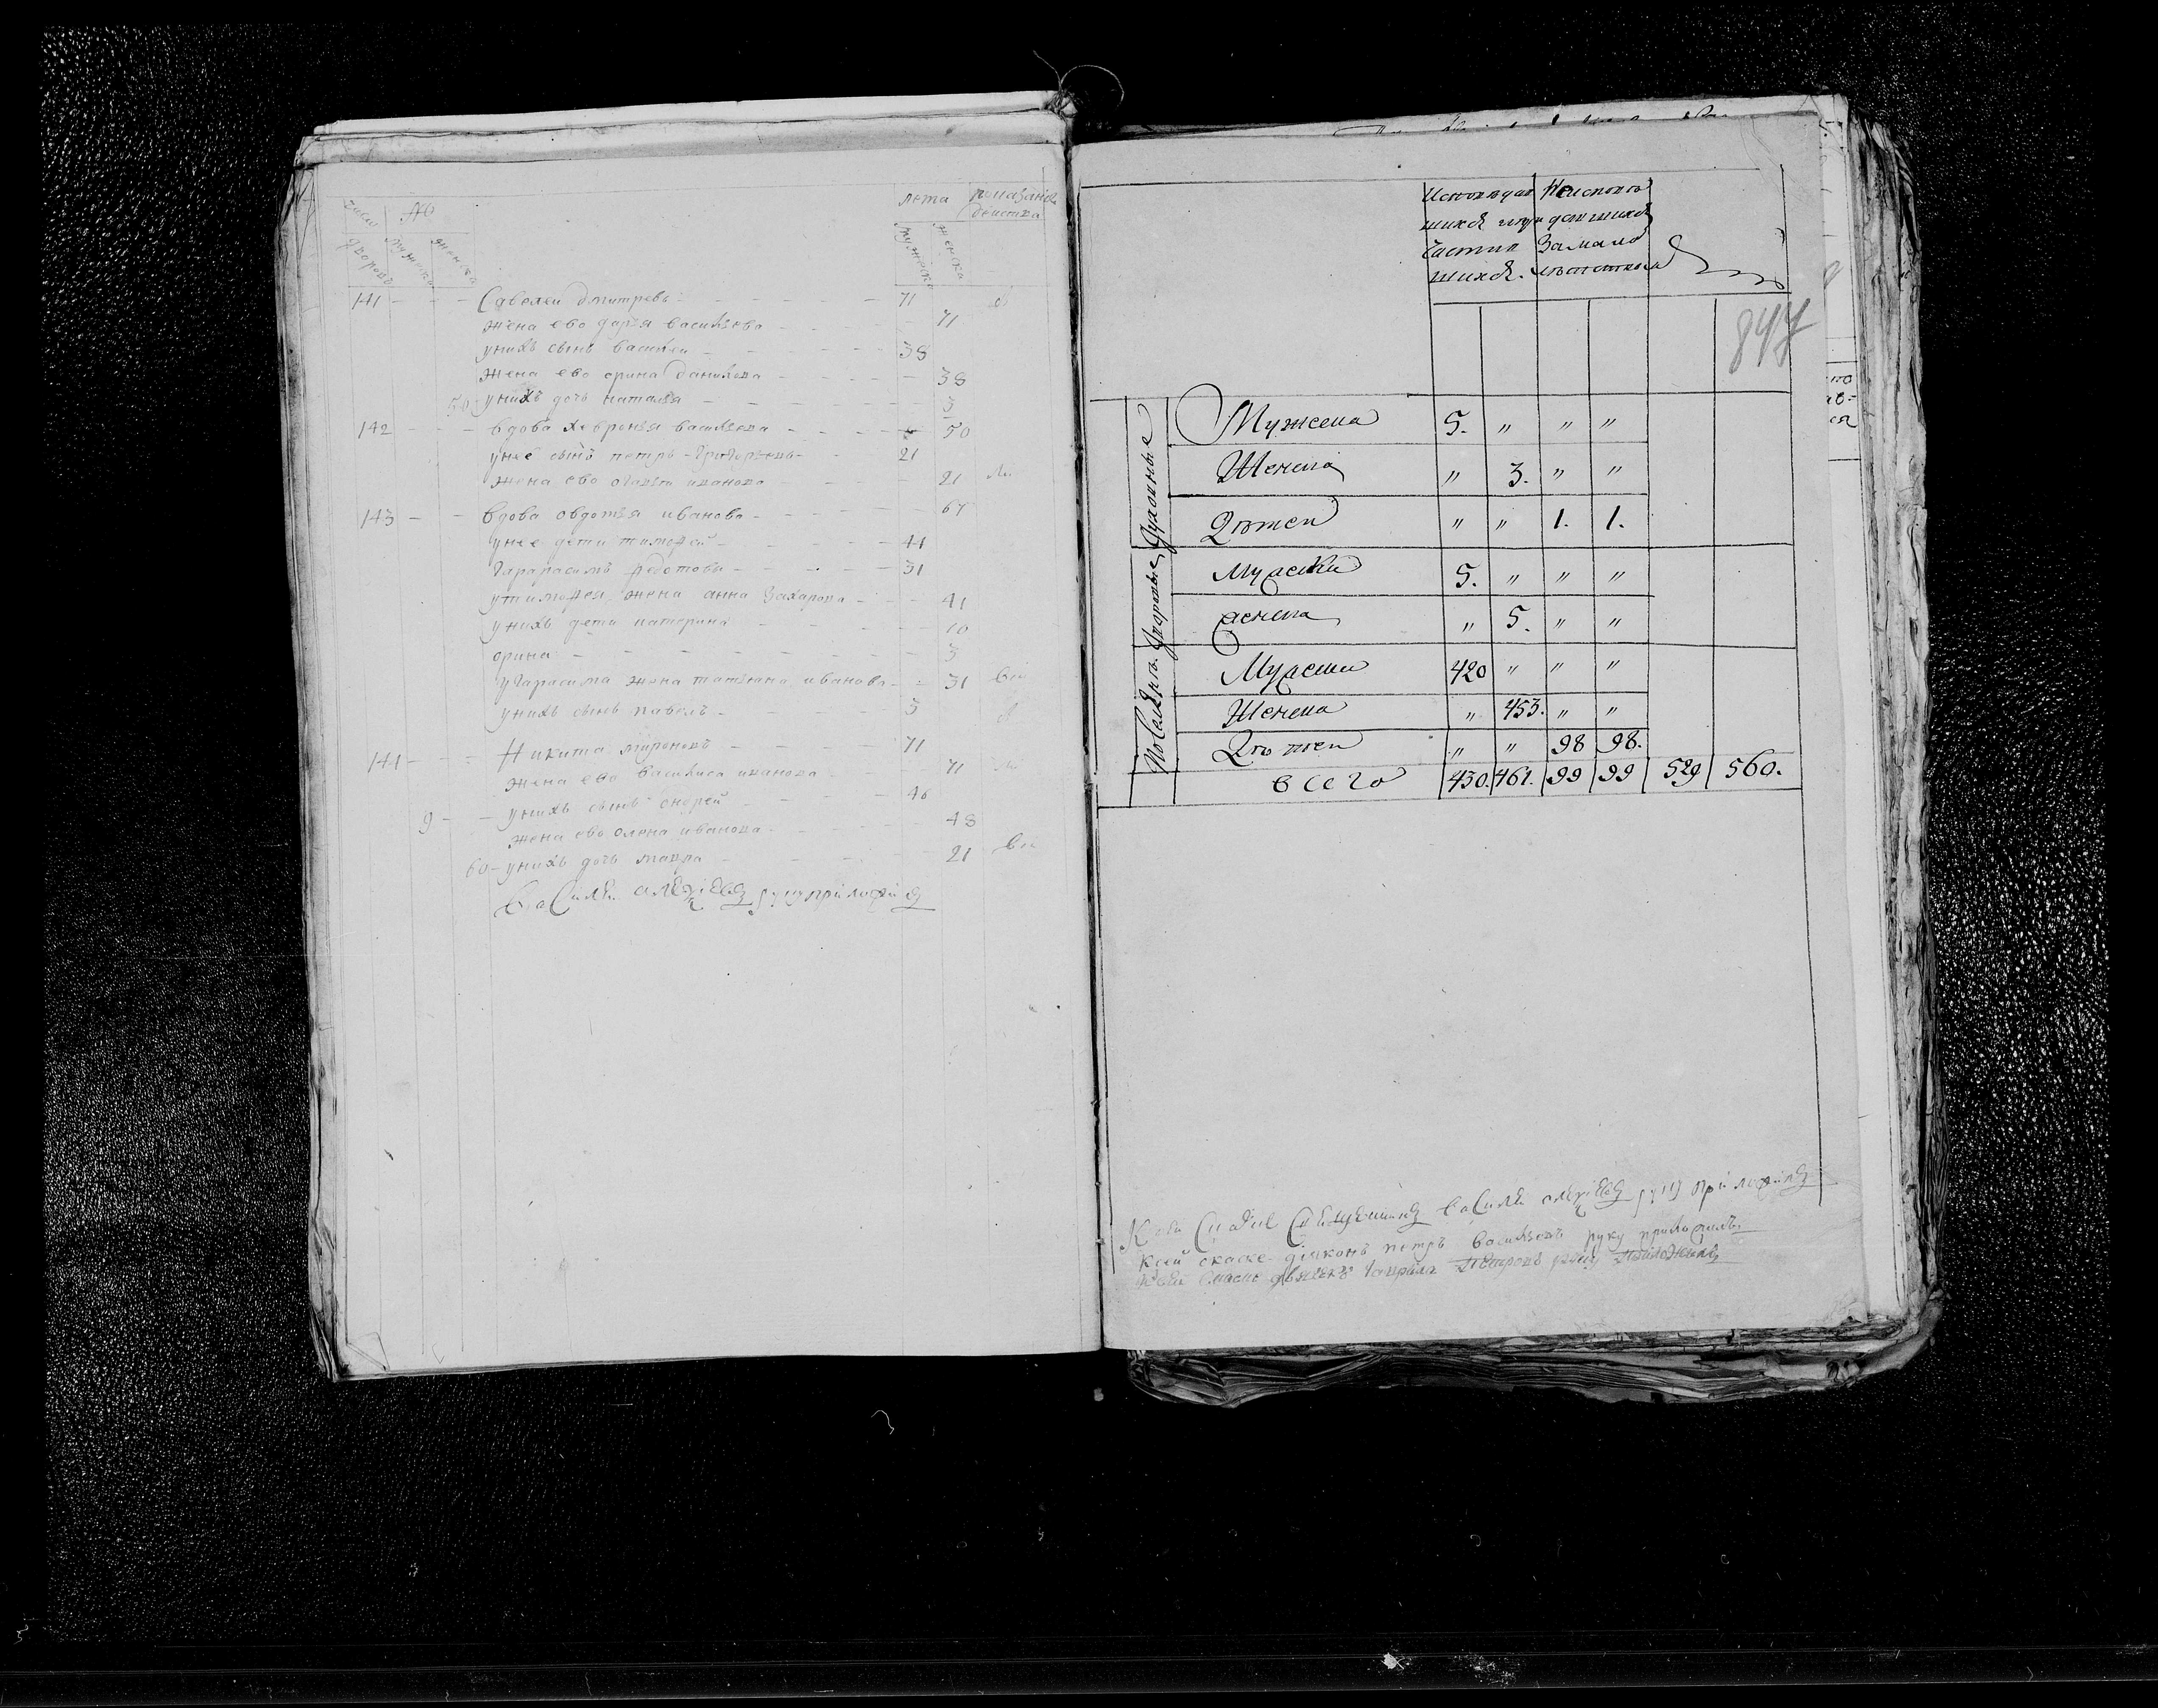 число № лета показание
дворовъ мужеска женска мужеска женска действа
141 Савелеи дмитревъ 71
жена ево дарья васильева 71
унихъ сынъ василеи 38
жена ево орина данилова 38
50 унихъ дочь наталья 3
142 вдова хавронья васильева 50
унее сынъ петръ григорьевъ 21
жена ево иванова 21
143 вдова овдотья иванова 67
унее дети тимофей 41
гарарасимъ федотовы 31
утимофея жена анна захарова 41
унихъ дети катерина 10
орина 3
угарасима жена татьяна иванова 31
унихъ сынъ павелъ 3
144 Никита мироновъ 71
жена ево василиса иванова 71
9 унихъ сынъ ондрей 46
жена ево олена иванова 48
60 унихъ дочь мавра 21
василей алеѯiевъ руку приложилъ
Исповедав Неиспове
шихся и при давшихся
частив за мало
шихся летством
847
Духовные
Мужеска 5. " " "
Женска " 3. " "
Детей " " 1. 1.
Дворовые
Мужски 5. " " "
женска " 5. " "
Мужеска 420 " " "
Женска " 453. " "
Детей " " 98 98.
всего 430. 461. 99 99 529 560.
Ксей скаске священникъ василей алеѯiевъ руку приложилъ
Ксей скаске дiяконъ петръ васильевъ руку приложилъ.
Ксей скаске дьячекъ гаврила петровъ руку приложилъ